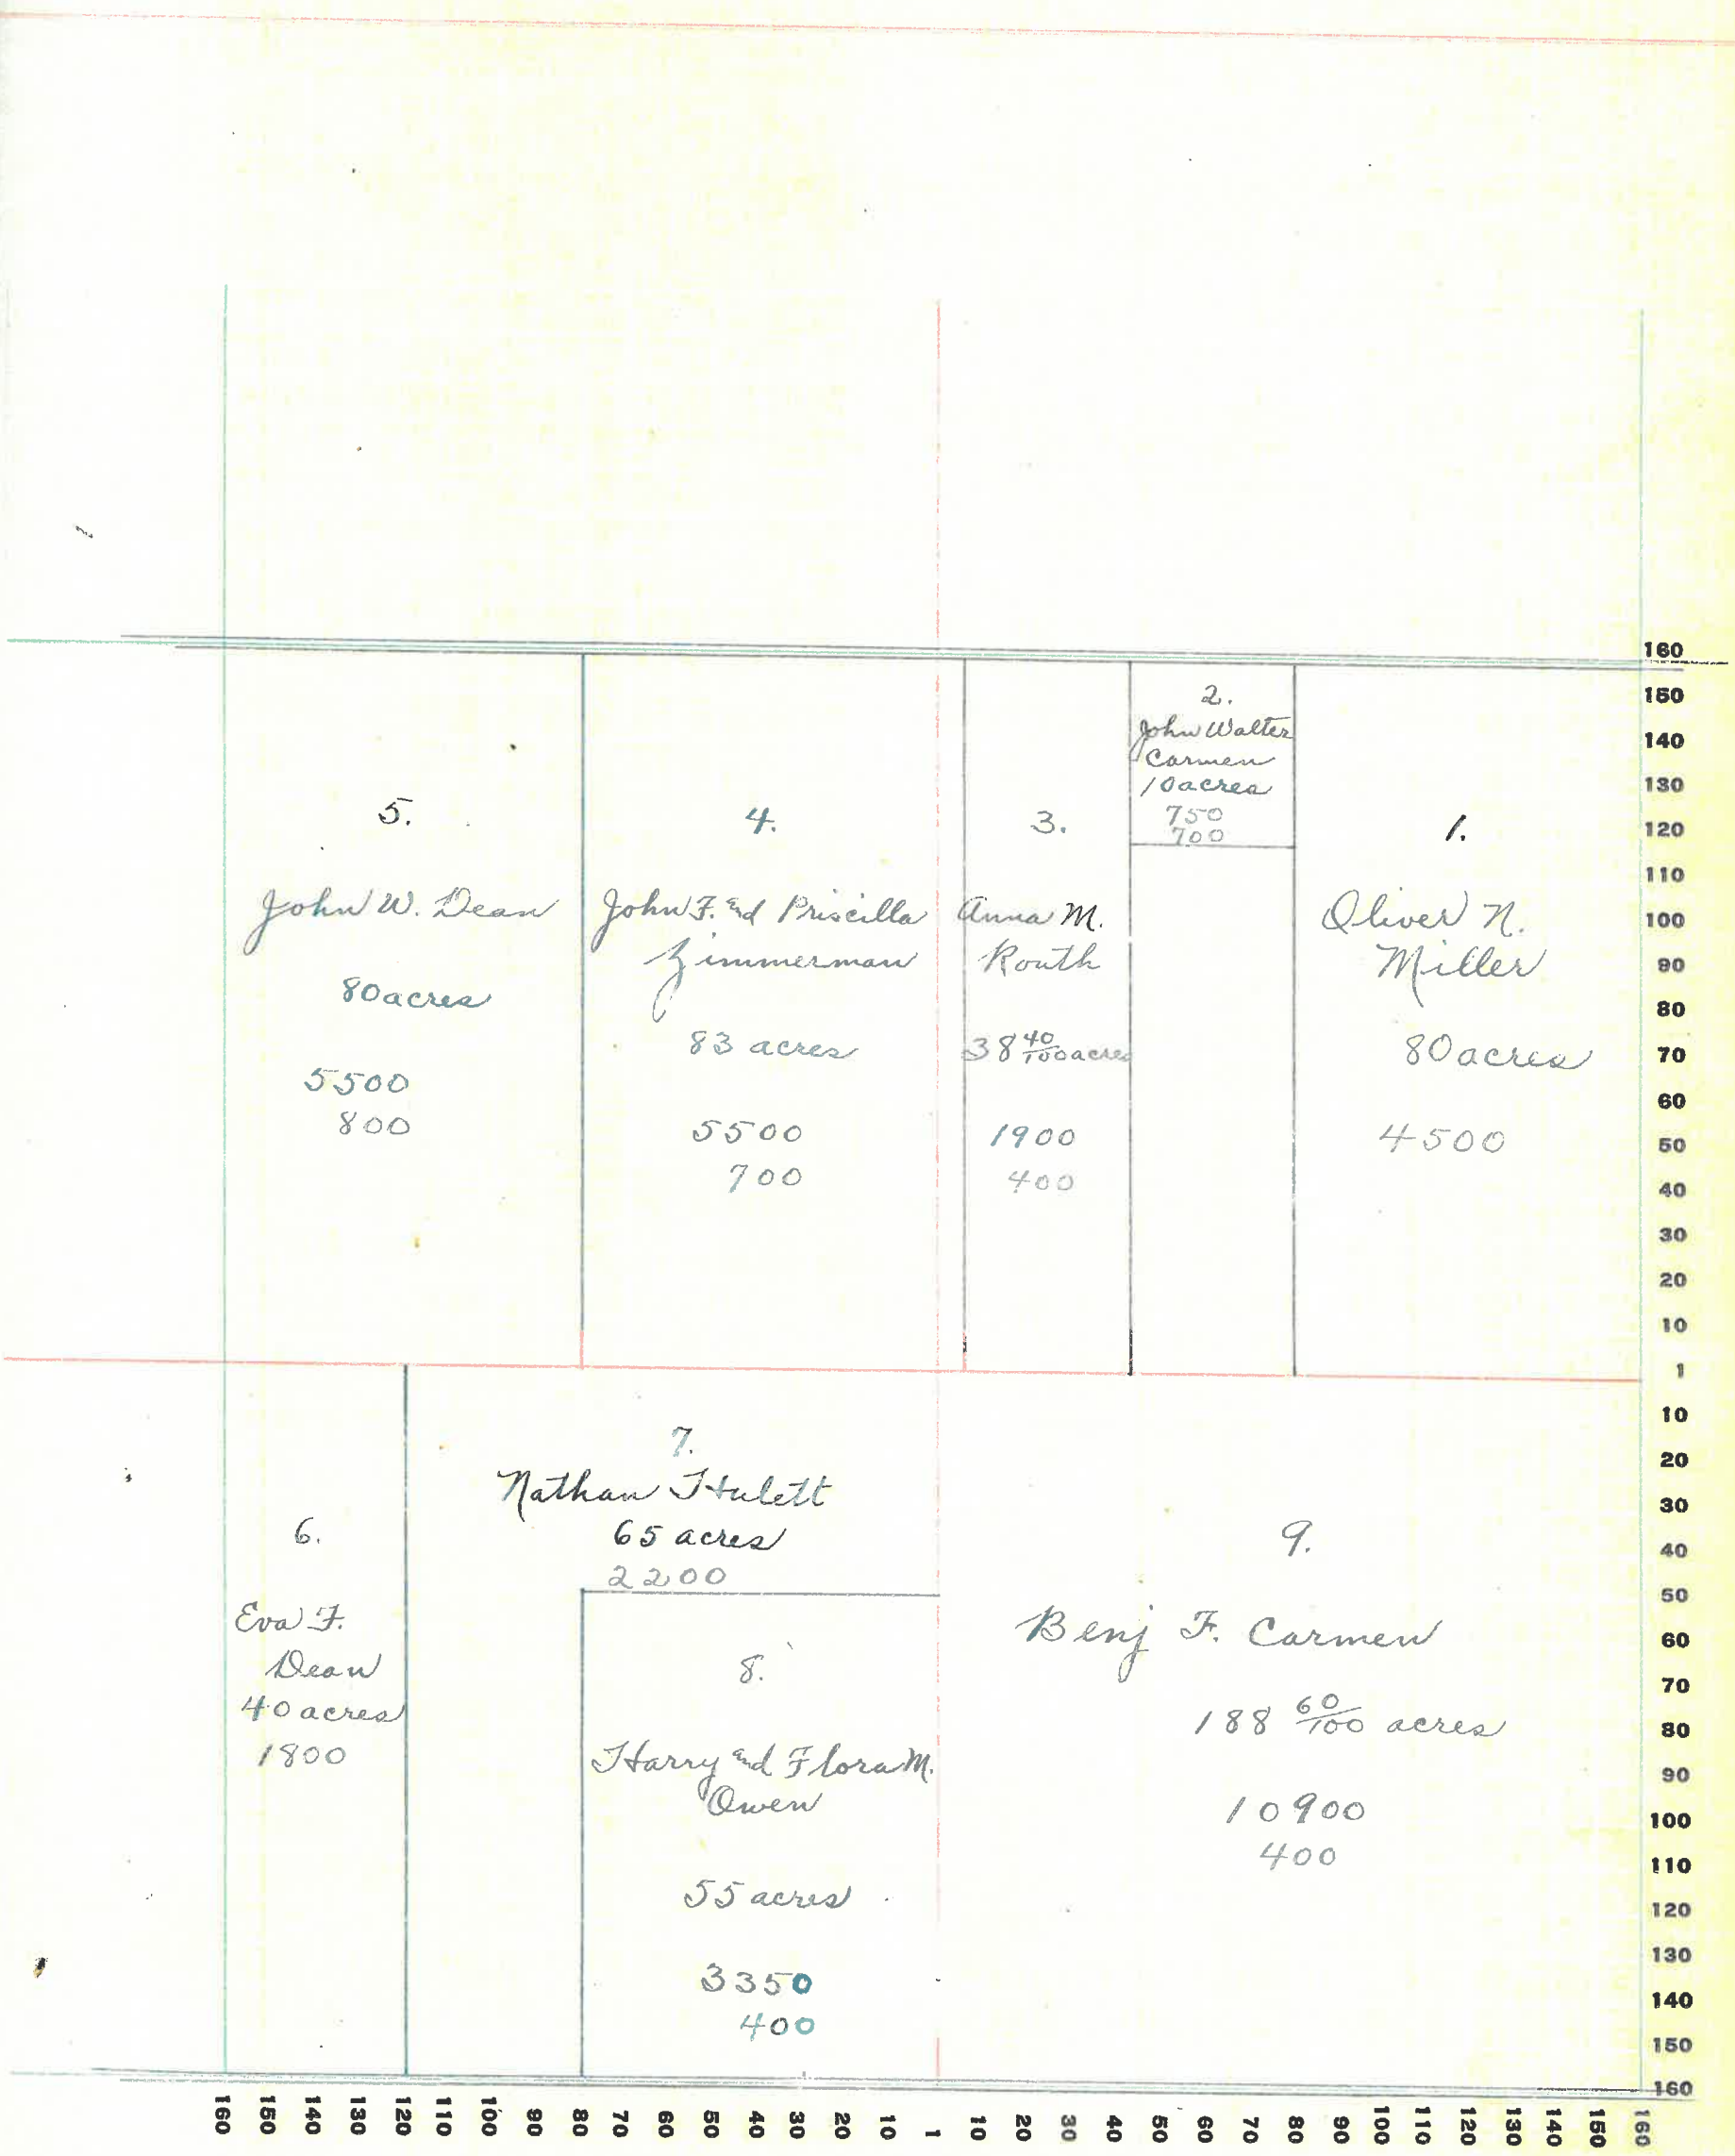 1.
Oliver N.
Miller
80 acres
4500
2.
John Walter
Carmen
10 acres
750
700
3.
Anna M.
Routh
38 40/100 acres
1900
400
4.
John F. and Priscilla
Zimmerman
83 acres
5500
700
5.
John W. Dean
80 acres
5500
800
6.
Eva F.
Dean
40 acres
1800
7.
Nathan Hulett
65 acres
2200
8.
Harry and Flora M.
Owen
55 acres
3350
400
9.
Benj F. Carmen
188 60/100 acres
10900
400
160
150
140
130
120
110
100
90
80
70
60
50
40
30
20
10
1
10
20
30
40
50
60
70
80
90
100
110
120
130
140
150
160
160 150 140 130 120 110 100 90 80 70 60 50 40 30 20 10 1 10 20 30 40 50 60 70 80 90 100 110 120 130 140 150 160